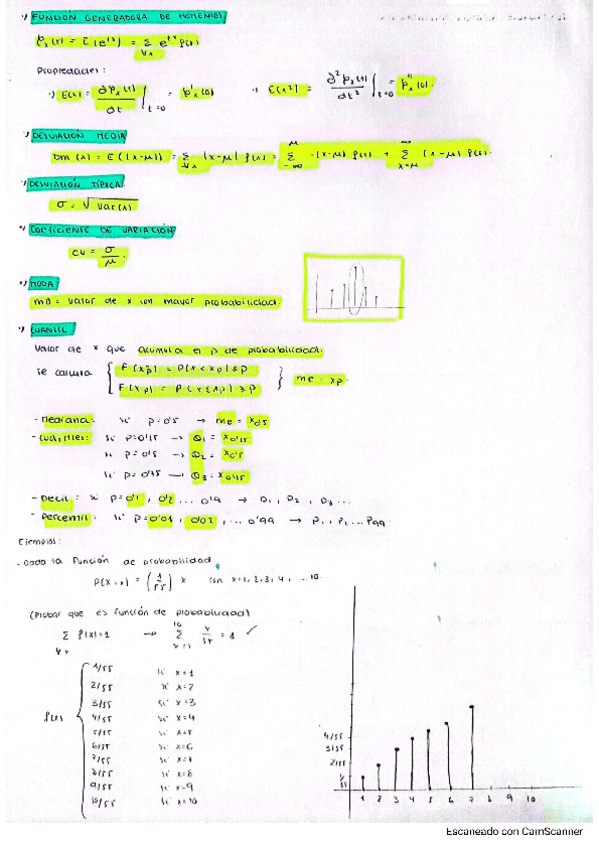 •) FUNCIÓN GENERADORA DE MOMENTOS
φx(t) = E(e^tx) = Σ∀x e^tx P(x)
Propiedades:
•) E(x) = ∂φx(t)/∂t |t=0 = φ'x(0) •) E(x²) = ∂²φx(t)/∂t² |t=0 = φ''x(0)
•) DESVIACIÓN MEDIA
Dm(x) = E(|x-μ|) = Σ∀x |x-μ| P(x) = Σ -(x-μ) P(x) + Σ (x-μ) P(x)
•) DESVIACIÓN TÍPICA
σ = √Var(x)
•) COEFICIENTE DE VARIACIÓN
CV = σ/μ
•) MODA
mo = valor de x con mayor probabilidad
•) CUANTIL
Valor de x que acumula el p de probabilidad.
se calcula { F(xp⁻) = P(x < xp) ≤ p
F(xp) = P(x ≤ xp) ≥ p } me = xp.
- Mediana: si p=0'5 → me = x0'5
- Cuartiles: si p=0'25 → Q1 = x0'25
si p=0'5 → Q2 = x0'5
si p=0'75 → Q3 = x0'75
- Decil: si p=0'1, 0'2 ... 0'9 → D1, D2, D3...
- Percentil: si p=0'01, 0'02, ... 0'99 → P1, P2 ... P99
Ejemplos:
- Dada la función de probabilidad
P(X=x) = (1/55) x con x=1, 2, 3, 4, ... 10.
(Probar que es función de probabilidad)
Σ∀x P(x)=1 → Σ x=1 10 x/55 = 1 ✓
P(x) { 1/55 si x=1
2/55 si x=2
3/55 si x=3
4/55 si x=4
5/55 si x=5
6/55 si x=6
7/55 si x=7
8/55 si x=8
9/55 si x=9
10/55 si x=10
4/55
3/55
2/55
1/55
1 2 3 4 5 6 7 8 9 10
Escaneado con CamScanner